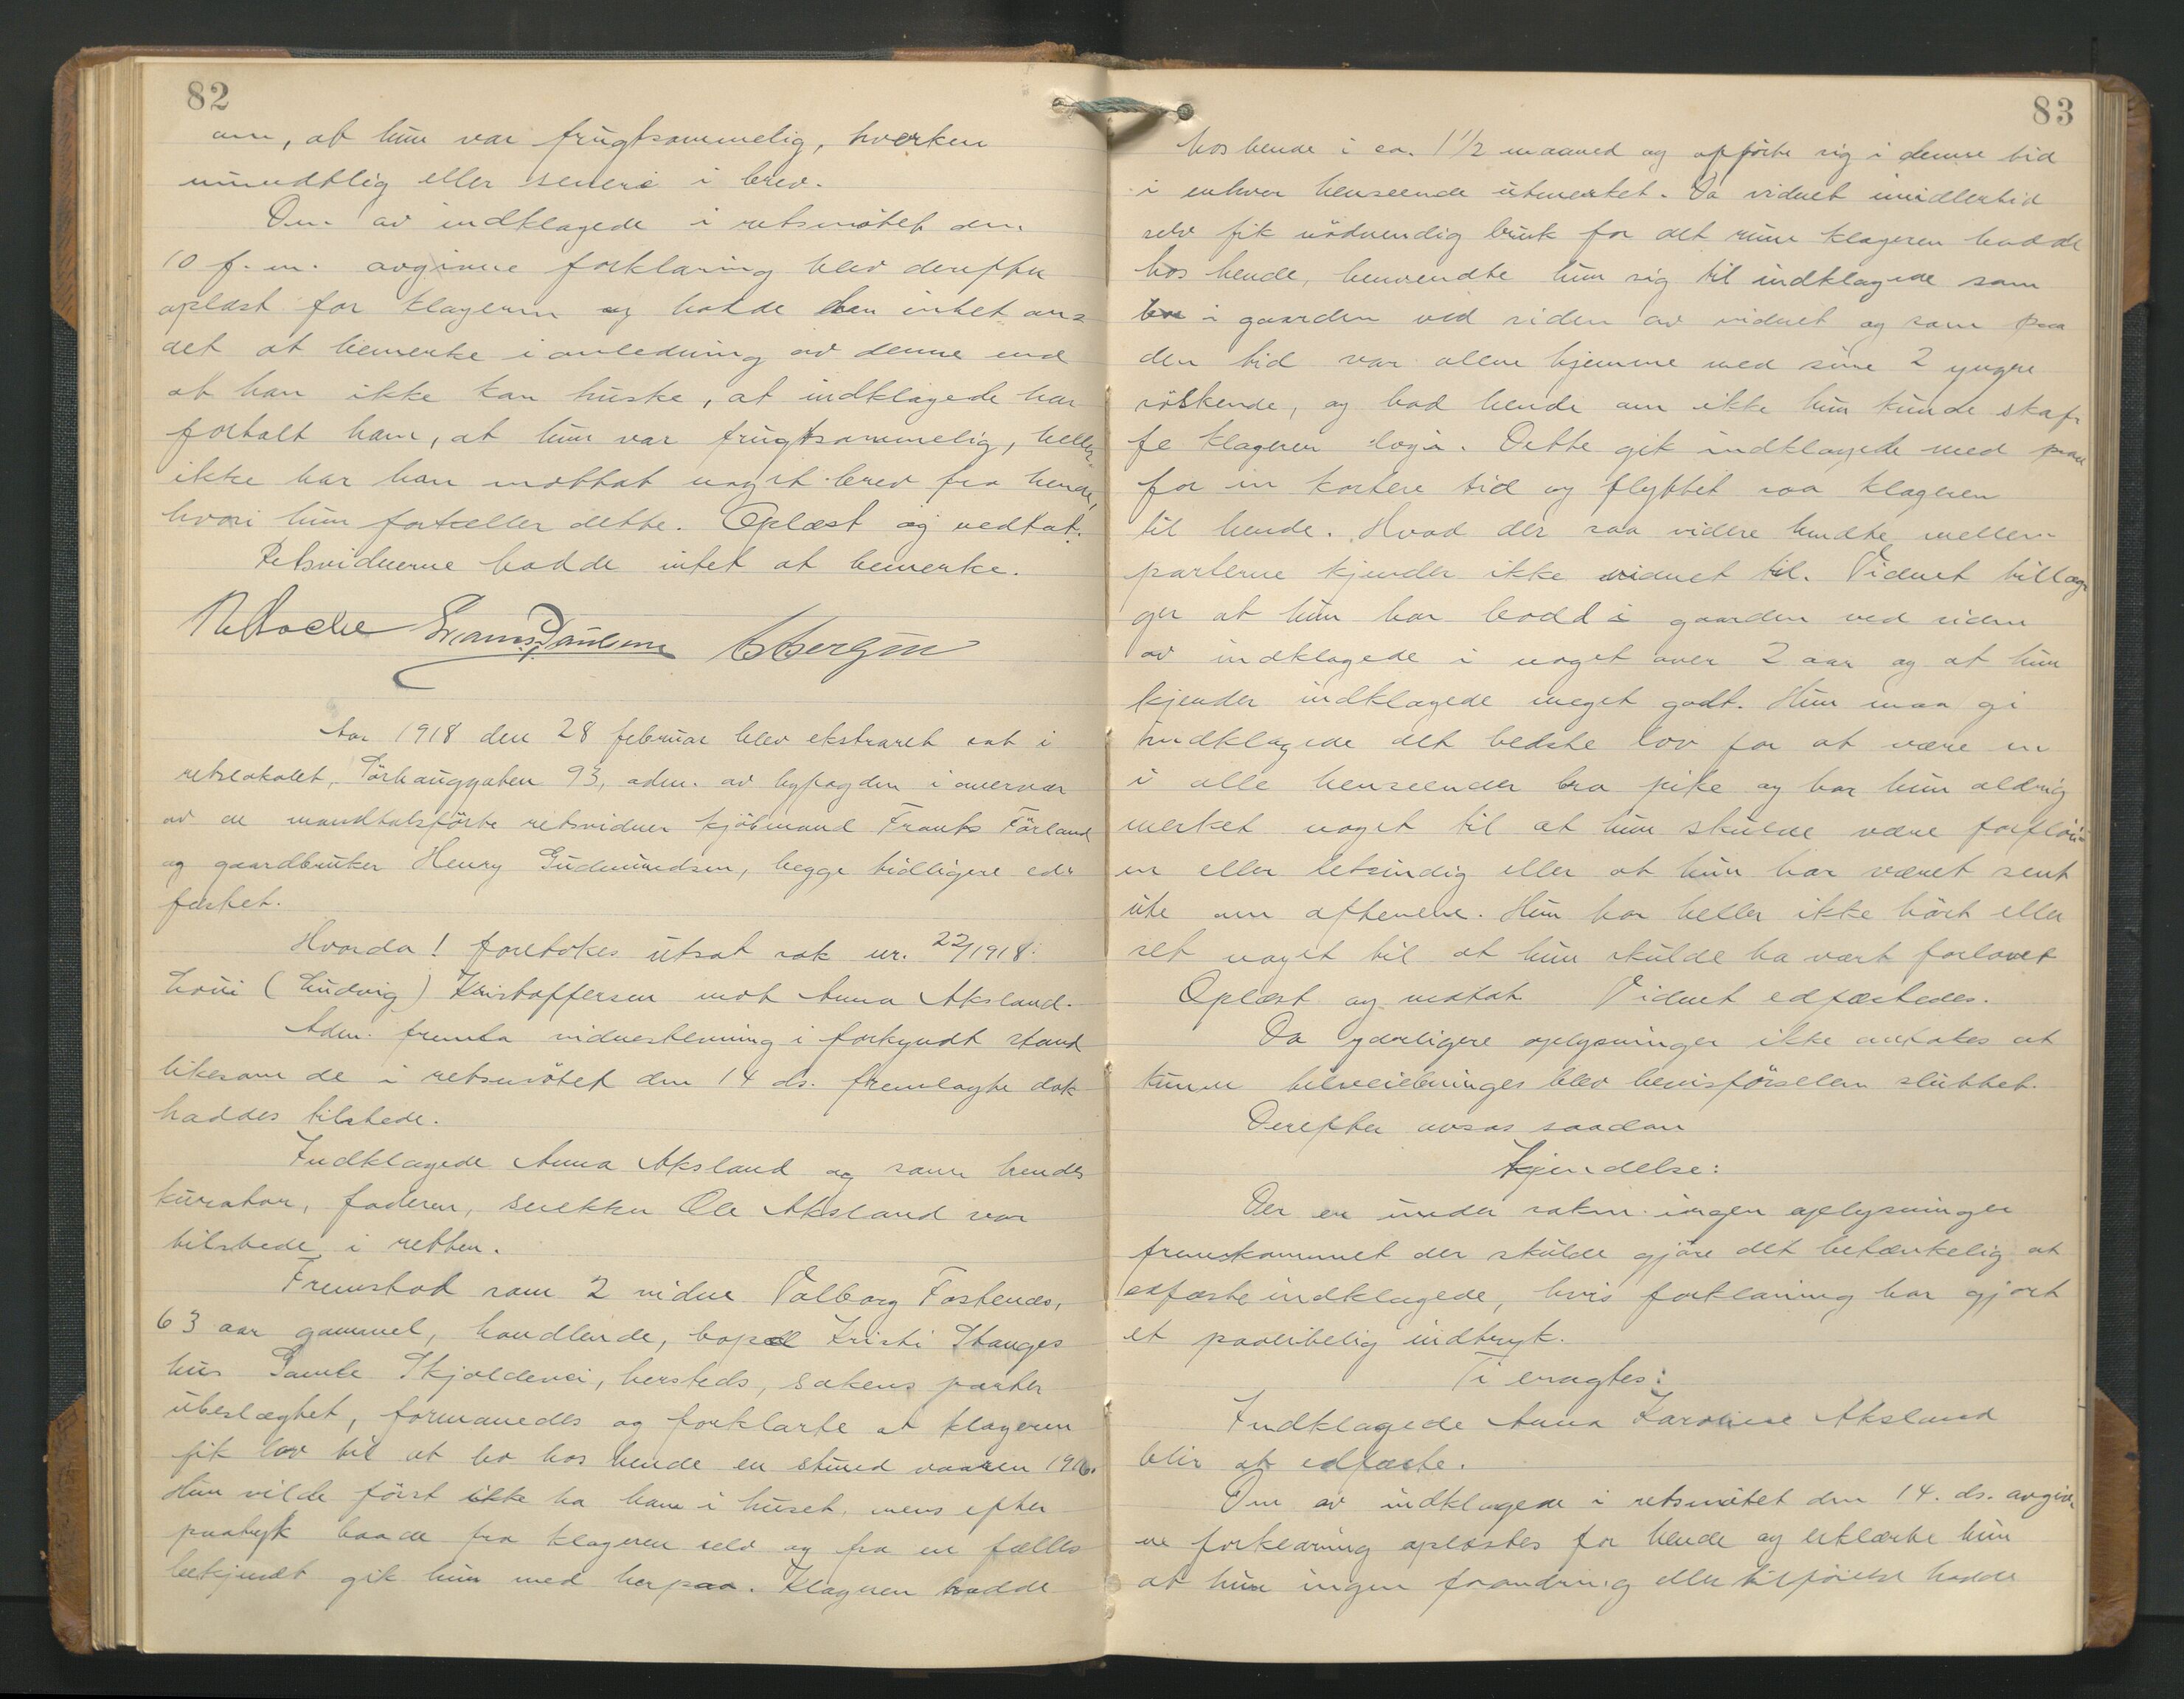 82
om, at hun var frugtsommelig, hverken
mundtlig eller senere i brev.
Den av indklagede i retsmøtet den
10 f.m. avgivne forklaring blev derefter
oplæst for klageren og hadde han intet an=
det at bemerke i anledning av denne end
at han ikke kan huske, at indklagede har
fortalt ham, at hun var frugtsommelig, heller
ikke har han mottat noget brev fra hende,
hvori hun forteller dette. Oplæst og vedtat.
Retsvidnerne hadde intet at bemerke.
Aar 1918 den 28 februar blev ekstraret sat i
retslokalet, Torhauggaten 93, adm. av byfogden i overvær
av de mandtalsførte retsvidner kjøbmand Frants Førland
og gaardbruker Henry Gudmundsen, begge tidligere ed-
fæstet.
Hvorda! foretokes utsat sak nr. 22/1918:
Loui (Ludvig) Kristoffersen mot Anna Aksland.
Adm. fremla vidnestevning i forkyndt stand
likesom de i retsmøtet den 14 ds. fremlagte dok
haddes tilstede.
Indklagede Anna Aksland og som hendes
kurator, faderen, snekker Ole Aksland var
tilstede i retten.
Fremstod som 2 vidne Valborg Fostenes,
63 aar gammel, handlende, bopæl Kristi Stanges
hus Gamle Skjoldevei, hersteds, sakens parter
ubeslægtet, formanedes og forklarte at klageren
fik lov til at bo hos hende en stund vaaren 1916.
Hun vilde først ikke ha ham i huset, mens efter
paatryk baade fra klageren selv og fra en fælles
bekjendt gik hun med herpaa. Klageren bodde
83
hos hende i ca. 1 1/2 maaned og opførte sig i denne tid
i enhver henseende utmerket. Da vidnet imidlertid
selv fik nødvendig bruk for det rum klageren hadde
hos hende, henvendte hun sig til indklagede som
bor i gaarden ved siden av vidnet og som paa
den tid var alene hjemme med sine 2 yngre
søskende, og bad hende om ikke hun kunde skaf-
fe klageren logi. Dette gik indklagede med paa
for en kortere tid og flyttet saa klageren
til hende. Hvad der saa videre hendte mellem
parterne kjender ikke vidnet til. Vidnet tillæg-
ger at hun har bodd i gaarden ved siden
av indklagede i noget over 2 aar og at hun
kjender indklagede meget godt. Hun maa gi
indklagede det bedste lov for at være en
i alle henseender bra pike og har hun aldrig
merket noget til at hun skulde være forfløi-
en eller letsindig eller at hun har været sent
ute om aftenene. Hun har heller ikke hørt eller
set noget til at hun skulde ha vært forlovet
Oplæst og vedtat. Vidnet edfæstedes.
Da yderligere oplysninger ikke antokes at
kunne tilveiebringes blev bevisførselen sluttet.
Derefter avsas saadan
Kjendelse:
Der er under saken ingen oplysninger
fremkommet der skulde gjøre det betænkelig at
edfæste indklagede, hvis forklaring har gjort
et paalitelig indtryk.
Ti eragtes:
Indklagede Anna Karoline Aksland
blir at edfæste.
Den av indklagede i retsmøtet den 14. ds. avgiv-
ne forklaring oplæstes for hende og erklærte hun
at hun ingen forandring eller tilføielse hadde